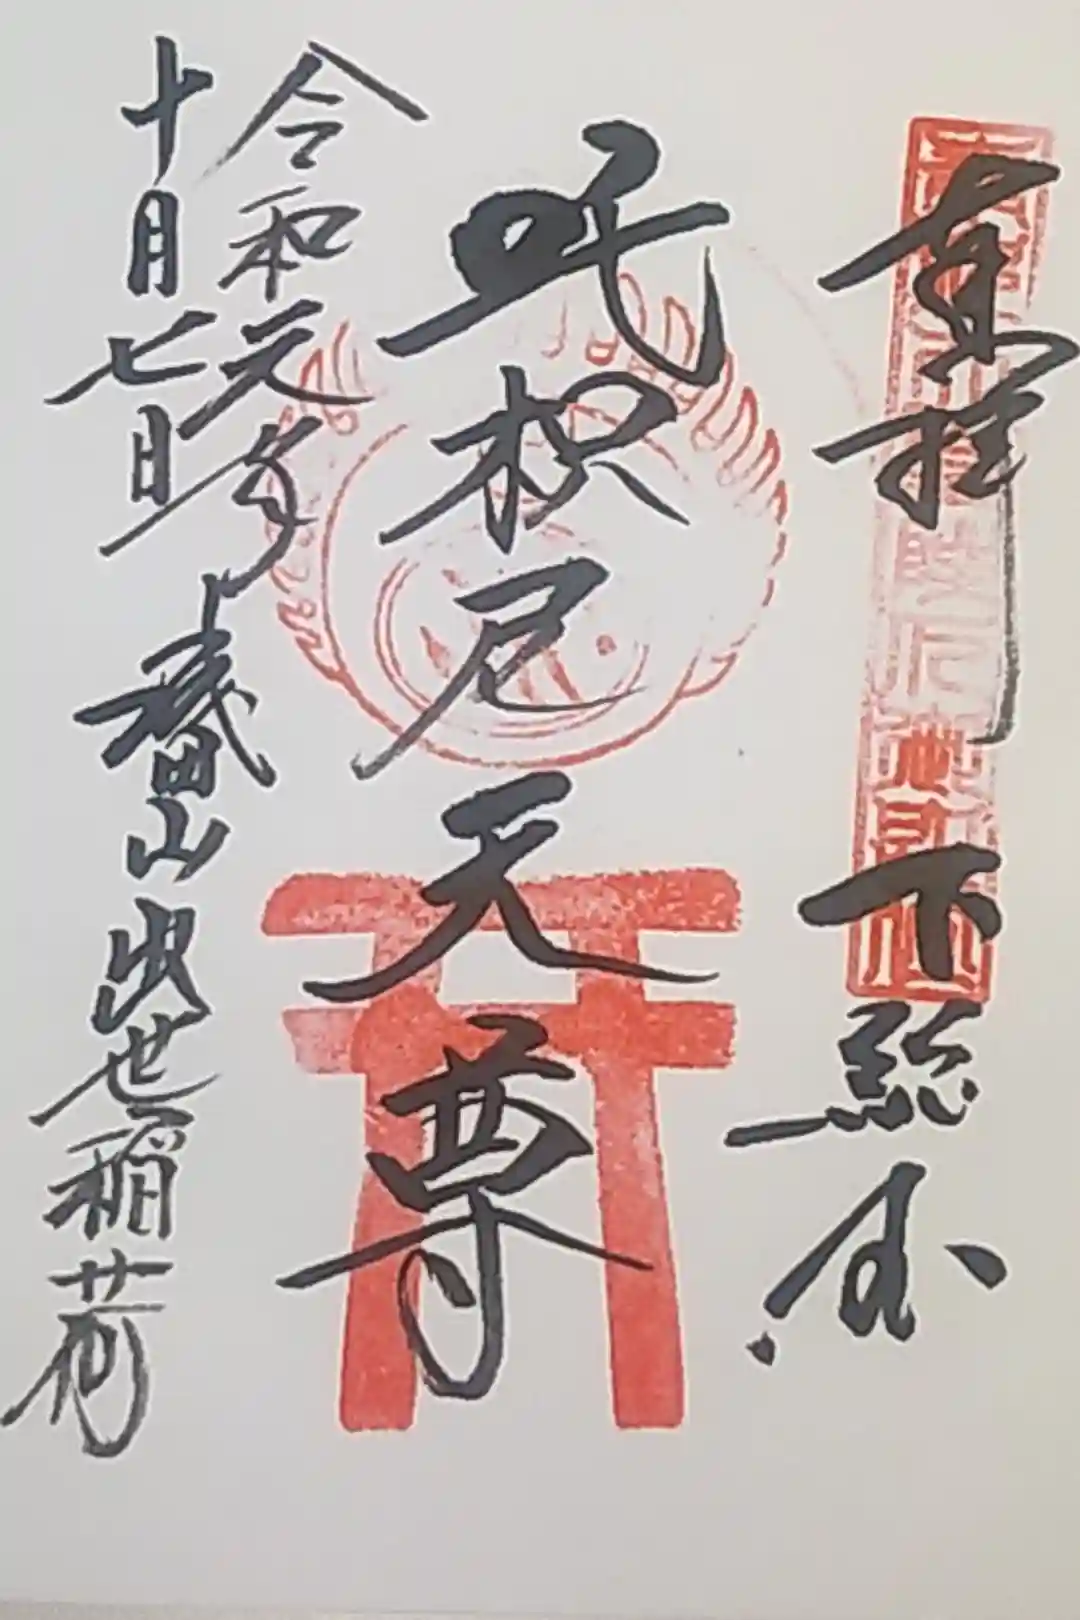 奉拝 下総
吒枳尼天尊
令和元年
十月七日
山 出世稲荷